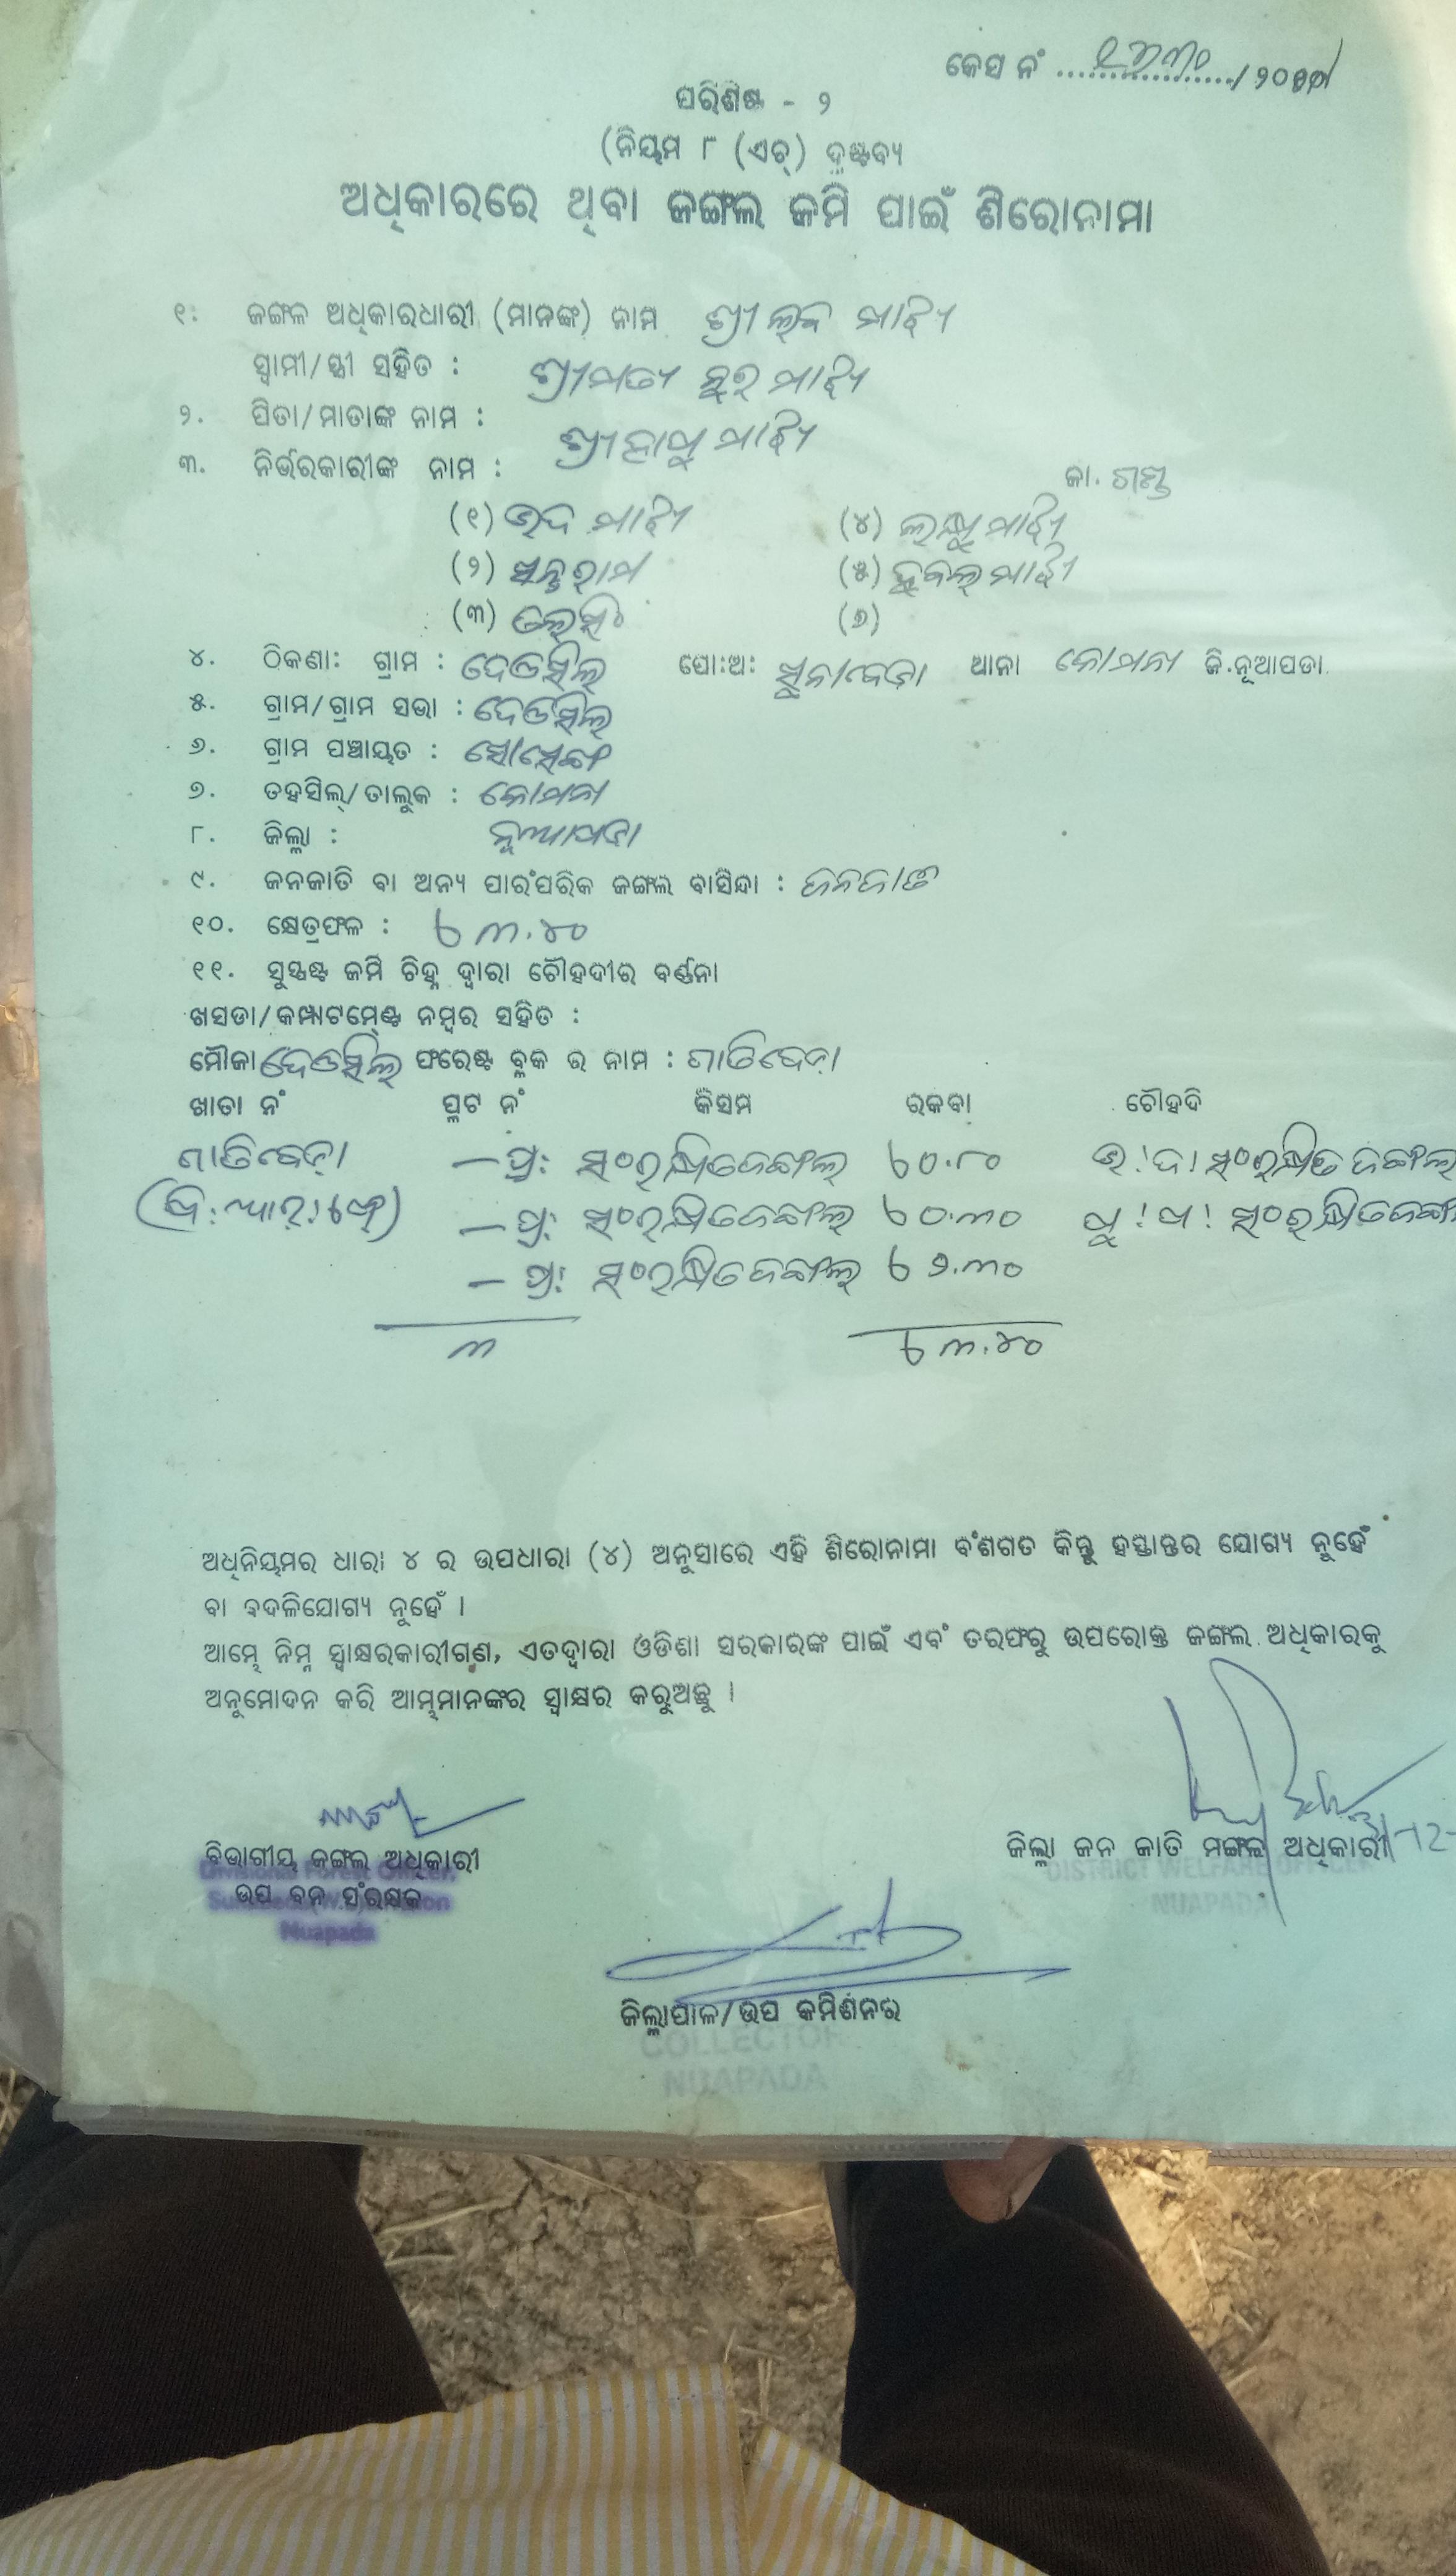 କେସ ନଂ ................/୨୦
ପରିଶିଷ୍ଟ - ୨
(ନିୟମ ୮ (ଏଚ୍) ଦ୍ରଷ୍ଟବ୍ୟ
ଅଧିକାରରେ ଥିବା ଜଙ୍ଗଲ ଜମି ପାଇଁ ଶିରୋନାମା
୧: ଜଙ୍ଗଲ ଅଧିକାରଧାରୀ (ମାନଙ୍କ) ନାମ ଶ୍ରୀ ଲବ ମାଝି
ସ୍ୱାମୀ/ସ୍ତ୍ରୀ ସହିତ : ଶ୍ରୀମତୀ ମାଝି
୨. ପିତା/ମାତାଙ୍କ ନାମ : ଶ୍ରୀ ମାଝି
୩. ନିର୍ଭରକାରୀଙ୍କ ନାମ : ଜା. ଗଣ୍ଡ
(୧) ଉଦ ମାଝି (୪) ମାଝି
(୨) ସନ୍ତରାମ (୫) ମାଝି
(୩) (୬)
୪. ଠିକଣା: ଗ୍ରାମ : ଦେଓସିଲ୍ ପୋ:ଅ: ସୁନାବେଡା ଥାନା କୋମନା ଜି.ନୂଆପଡା
୫. ଗ୍ରାମ/ଗ୍ରାମ ସଭା : ଦେଓସିଲ୍
୬. ଗ୍ରାମ ପଞ୍ଚାୟତ :
୭. ତହସିଲ୍/ତାଲୁକ : କୋମନା
୮. ଜିଲ୍ଲା : ନୂଆପଡା
୯. ଜନଜାତି ବା ଅନ୍ୟ ପାରଂପରିକ ଜଙ୍ଗଲ ବାସିନ୍ଦା : ଜନଜାତି
୧୦. କ୍ଷେତ୍ରଫଳ : ୩.୪୦
୧୧. ସୁସ୍ପଷ୍ଟ ଜମି ଚିହ୍ନ ଦ୍ୱାରା ଚୌହଦୀର ବର୍ଣ୍ଣନା
ଖସଡା/କମ୍ପାଟମେଣ୍ଟ ନମ୍ବର ସହିତ :
ମୌଜା ଦେଓସିଲ୍ ଫରେଷ୍ଟ ବ୍ଲକ ର ନାମ : ପାତିବେଡା
ଖାତା ନଂ ପ୍ଳଟ ନଂ କିସମ ରକବା ଚୌହଦି
ପାତିବେଡା — ପ୍ର: ସଂରକ୍ଷିତ ଜଙ୍ଗଲ ୦.୮୦ ଉ! ଦ! ସଂରକ୍ଷିତ ଜଙ୍ଗଲ
— ପ୍ର: ସଂରକ୍ଷିତ ଜଙ୍ଗଲ ୦.୩୦ ପୁ! ପ! ସଂରକ୍ଷିତ
— ପ୍ର: ସଂରକ୍ଷିତ ଜଙ୍ଗଲ ୨.୩୦
୩ ୩.୪୦
ଅଧିନିୟମର ଧାରା ୪ ର ଉପଧାରା (୪) ଅନୁସାରେ ଏହି ଶିରୋନାମା ବଂଶଗତ କିନ୍ତୁ ହସ୍ତାନ୍ତର ଯୋଗ୍ୟ ନୁହେଁ
ବା ବଦଳିଯୋଗ୍ୟ ନୁହେଁ ।
ଆମ୍ଭେ ନିମ୍ନ ସ୍ୱାକ୍ଷରକାରୀଗଣ, ଏତଦ୍ୱାରା ଓଡିଶା ସରକାରଙ୍କ ପାଇଁ ଏବଂ ତରଫରୁ ଉପରୋକ୍ତ ଜଙ୍ଗଲ ଅଧିକାରକୁ
ଅନୁମୋଦନ କରି ଆମ୍ଭମାନଙ୍କର ସ୍ୱାକ୍ଷର କରୁଅଛୁ ।
ବିଭାଗୀୟ ଜଙ୍ଗଲ ଅଧିକାରୀ
ଉପ ବନ ସଂରକ୍ଷକ
Nuapada
ଜିଲ୍ଲା ଜନ ଜାତି ମଙ୍ଗଳ ଅଧିକାରୀ
DISTRICT WELFARE OFFICER
NUAPADA
ଜିଲ୍ଲାପାଳ/ଉପ କମିଶନର
COLLECTOR
NUAPADA